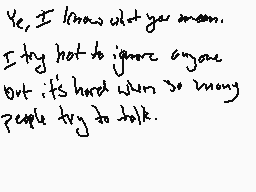 Ye, I know what you mean.
I try not to ignore anyone
but it's hard when so many
people try to talk.